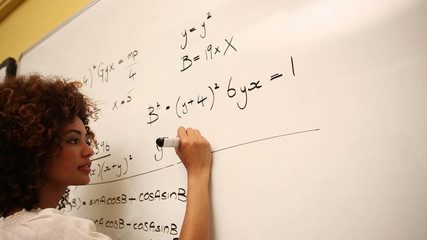 y = y²
B = 19 x X
4)² Gyx = mp/4
x = 5
B² = (y+4)² 6yx = 1
x)(x+y)²
y
B) = sinAcosB + cosAsinB
sinAcosB - cosAsinB